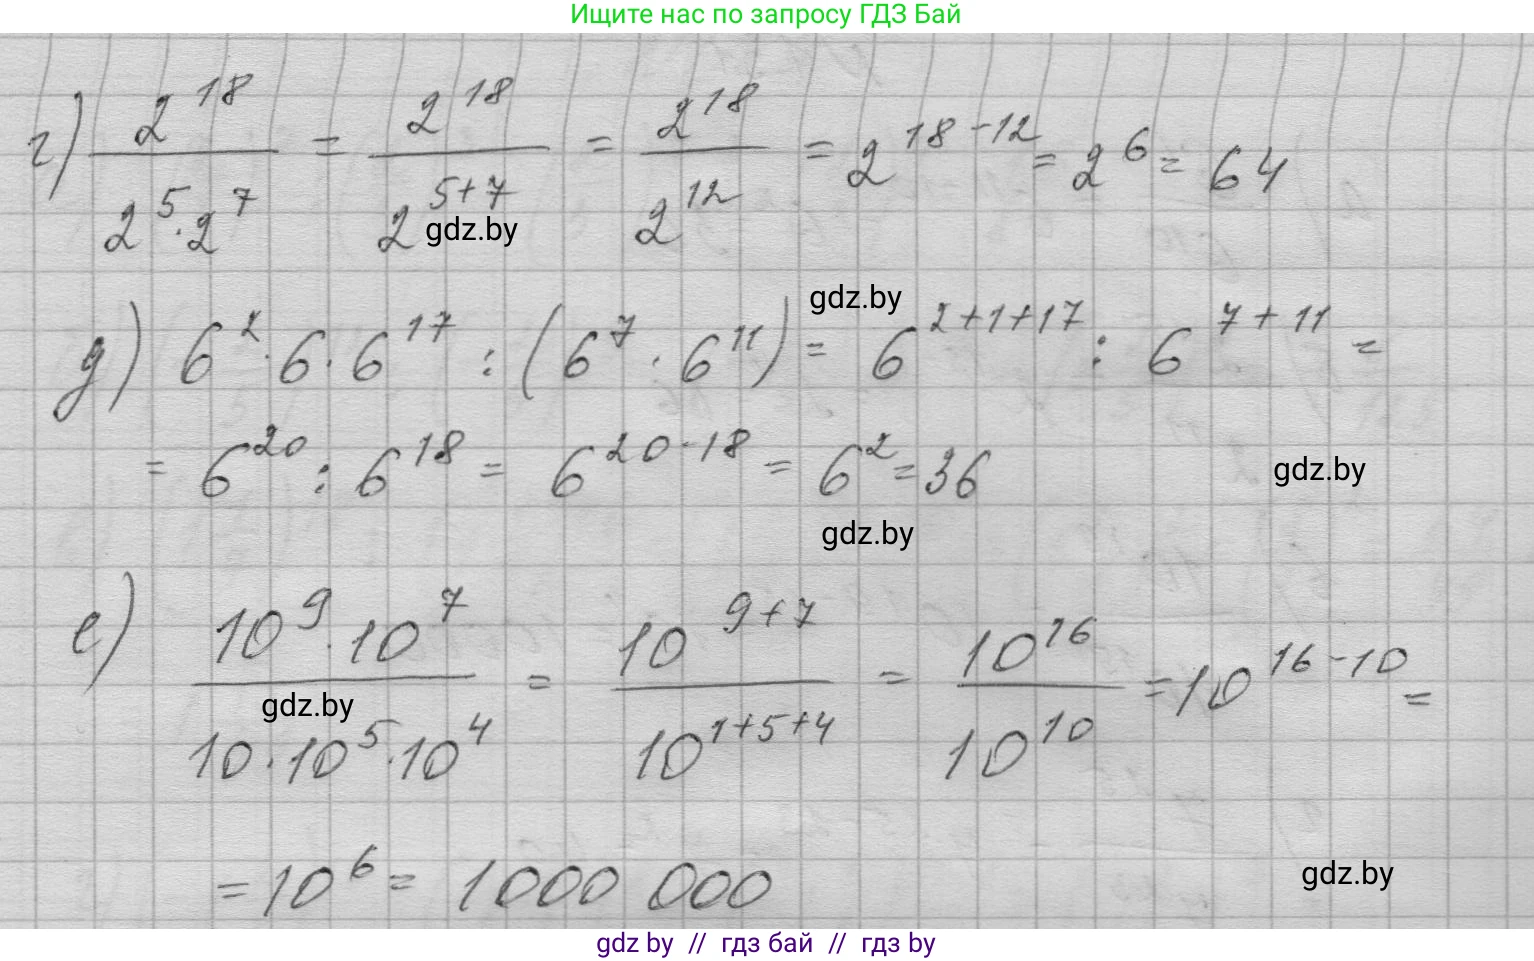 Ищите нас по запросу ГДЗ Бай
г) 2^18 / (2^5 · 2^7) = 2^18 / 2^(5+7) = 2^18 / 2^12 = 2^(18-12) = 2^6 = 64
gdz.by
gdz.by
д) 6^2 · 6 · 6^17 : (6^7 · 6^11) = 6^(2+1+17) : 6^(7+11) =
= 6^20 : 6^18 = 6^(20-18) = 6^2 = 36
gdz.by
gdz.by
е) (10^9 · 10^7) / (10 · 10^5 · 10^4) = 10^(9+7) / 10^(1+5+4) = 10^16 / 10^10 = 10^(16-10) =
gdz.by
= 10^6 = 1000 000
gdz.by
gdz by // гдз бай // гдз by